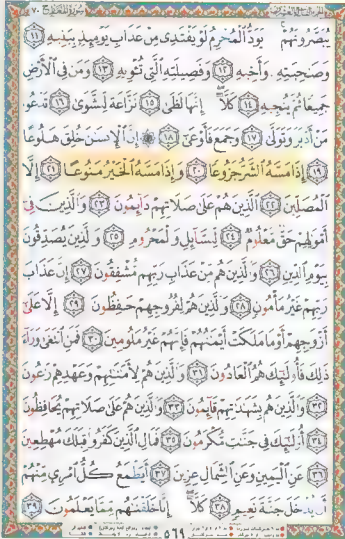 يُبَصَّرُونَهُمْ يَوَدُّ الْمُجْرِمُ لَوْ يَفْتَدِى مِنْ عَذَابِ يَوْمِئِذٍ بِبَنِيهِ ١١
وَصَاحِبَتِهِ وَأَخِيهِ ١٢ وَفَصِيلَتِهِ الَّتِى تُـْٔوِيهِ ١٣ وَمَن فِى الْأَرْضِ
جَمِيعًا ثُمَّ يُنجِيهِ ١٤ كَلَّا إِنَّهَا لَظَىٰ ١٥ نَزَّاعَةً لِّلشَّوَىٰ ١٦ تَدْعُوا۟
مَنْ أَدْبَرَ وَتَوَلَّىٰ ١٧ وَجَمَعَ فَأَوْعَىٰ ١٨ إِنَّ الْإِنسَٰنَ خُلِقَ هَلُوعًا
١٩ إِذَا مَسَّهُ الشَّرُّ جَزُوعًا ٢٠ وَإِذَا مَسَّهُ الْخَيْرُ مَنُوعًا ٢١ إِلَّا
الْمُصَلِّينَ ٢٢ الَّذِينَ هُمْ عَلَىٰ صَلَاتِهِمْ دَآئِمُونَ ٢٣ وَالَّذِينَ فِىٓ
أَمْوَٰلِهِمْ حَقٌّ مَّعْلُومٌ ٢٤ لِّلسَّآئِلِ وَالْمَحْرُومِ ٢٥ وَالَّذِينَ يُصَدِّقُونَ
بِيَوْمِ الدِّينِ ٢٦ وَالَّذِينَ هُم مِّنْ عَذَابِ رَبِّهِم مُّشْفِقُونَ ٢٧ إِنَّ عَذَابَ
رَبِّهِمْ غَيْرُ مَأْمُونٍ ٢٨ وَالَّذِينَ هُمْ لِفُرُوجِهِمْ حَٰفِظُونَ ٢٩ إِلَّا عَلَىٰٓ
أَزْوَٰجِهِمْ أَوْ مَا مَلَكَتْ أَيْمَٰنُهُمْ فَإِنَّهُمْ غَيْرُ مَلُومِينَ ٣٠ فَمَنِ ابْتَغَىٰ وَرَآءَ
ذَٰلِكَ فَأُو۟لَٰٓئِكَ هُمُ الْعَادُونَ ٣١ وَالَّذِينَ هُمْ لِأَمَٰنَٰتِهِمْ وَعَهْدِهِمْ رَٰعُونَ
٣٢ وَالَّذِينَ هُم بِشَهَٰدَٰتِهِمْ قَآئِمُونَ ٣٣ وَالَّذِينَ هُمْ عَلَىٰ صَلَاتِهِمْ يُحَافِظُونَ
٣٤ أُو۟لَٰٓئِكَ فِى جَنَّٰتٍ مُّكْرَمُونَ ٣٥ فَمَالِ الَّذِينَ كَفَرُوا۟ قِبَلَكَ مُهْطِعِينَ
٣٦ عَنِ الْيَمِينِ وَعَنِ الشِّمَالِ عِزِينَ ٣٧ أَيَطْمَعُ كُلُّ امْرِئٍ مِّنْهُمْ
أَن يُدْخَلَ جَنَّةَ نَعِيمٍ ٣٨ كَلَّا إِنَّا خَلَقْنَٰهُم مِّمَّا يَعْلَمُونَ ٣٩
٥٦٩